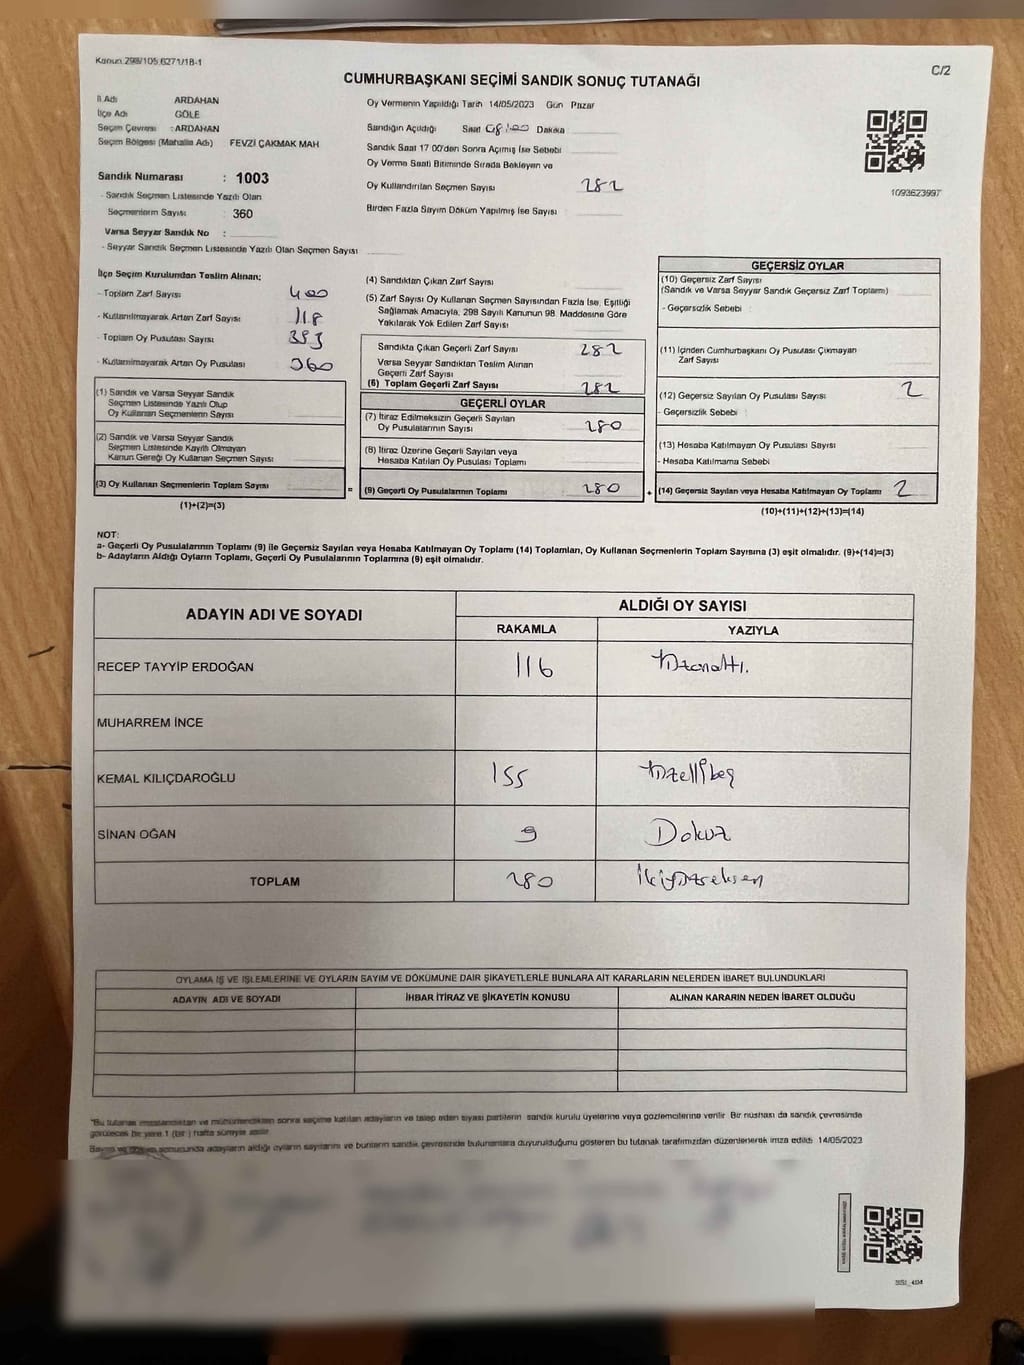 Kanun.298/105.6271/18-1
C/2
CUMHURBAŞKANI SEÇİMİ SANDIK SONUÇ TUTANAĞI
İl Adı ARDAHAN
İlçe Adı GÖLE
Seçim Çevresi : ARDAHAN
Seçim Bölgesi (Mahalle Adı) FEVZİ ÇAKMAK MAH
Sandık Numarası : 1003
- Sandık Seçmen Listesinde Yazılı Olan
Seçmenlerin Sayısı : 360
Varsa Seyyar Sandık No :
- Seyyar Sandık Seçmen Listesinde Yazılı Olan Seçmen Sayısı
Oy Vermenin Yapıldığı Tarih 14/05/2023 Gün Pazar
Sandığın Açıldığı Saat 08:00 Dakika
Sandık Saat 17 00'den Sonra Açılmış İse Sebebi
Oy Verme Saati Bitiminde Sırada Bekleyen ve
Oy Kullandırılan Seçmen Sayısı 282
Birden Fazla Sayım Döküm Yapılmış İse Sayısı
1093623997
İlçe Seçim Kurulundan Teslim Alınan;
- Toplam Zarf Sayısı 400
- Kullanılmayarak Artan Zarf Sayısı 118
- Toplam Oy Pusulası Sayısı 393
- Kullanılmayarak Artan Oy Pusulası 360
(1) Sandık ve Varsa Seyyar Sandık
Seçmen Listesinde Yazılı Olup
Oy Kullanan Seçmenlerin Sayısı
(2) Sandık ve Varsa Seyyar Sandık
Seçmen Listesinde Kayıtlı Olmayan
Kanun Gereği Oy Kullanan Seçmen Sayısı
(3) Oy Kullanan Seçmenlerin Toplam Sayısı
(1)+(2)=(3)
(4) Sandıktan Çıkan Zarf Sayısı
(5) Zarf Sayısı Oy Kullanan Seçmen Sayısından Fazla İse, Eşitliği
Sağlamak Amacıyla, 298 Sayılı Kanunun 98. Maddesine Göre
Yakılarak Yok Edilen Zarf Sayısı
Sandıkta Çıkan Geçerli Zarf Sayısı 282
Varsa Seyyar Sandıktan Teslim Alınan
Geçerli Zarf Sayısı
(6) Toplam Geçerli Zarf Sayısı 282
GEÇERLİ OYLAR
(7) İtiraz Edilmeksizin Geçerli Sayılan
Oy Pusulalarının Sayısı 280
(8) İtiraz Üzerine Geçerli Sayılan veya
Hesaba Katılan Oy Pusulası Toplamı
= (9) Geçerli Oy Pusulalarının Toplamı 280 +
GEÇERSİZ OYLAR
(10) Geçersiz Zarf Sayısı
(Sandık ve Varsa Seyyar Sandık Geçersiz Zarf Toplamı)
- Geçersizlik Sebebi :
(11) İçinden Cumhurbaşkanı Oy Pusulası Çıkmayan
Zarf Sayısı
(12) Geçersiz Sayılan Oy Pusulası Sayısı 2
- Geçersizlik Sebebi :
(13) Hesaba Katılmayan Oy Pusulası Sayısı
- Hesaba Katılmama Sebebi
(14) Geçersiz Sayılan veya Hesaba Katılmayan Oy Toplamı 2
(10)+(11)+(12)+(13)=(14)
NOT:
a- Geçerli Oy Pusulalarının Toplamı (9) ile Geçersiz Sayılan veya Hesaba Katılmayan Oy Toplamı (14) Toplamları, Oy Kullanan Seçmenlerin Toplam Sayısına (3) eşit olmalıdır. (9)+(14)=(3)
b- Adayların Aldığı Oyların Toplamı, Geçerli Oy Pusulalarının Toplamına (9) eşit olmalıdır.
ADAYIN ADI VE SOYADI ALDIĞI OY SAYISI
RAKAMLA YAZIYLA
RECEP TAYYİP ERDOĞAN 116 Yüzonaltı.
MUHARREM İNCE
KEMAL KILIÇDAROĞLU 155 Yüzellibeş
SİNAN OĞAN 9 Dokuz
TOPLAM 280 İkiyüzseksen
OYLAMA İŞ VE İŞLEMLERİNE VE OYLARIN SAYIM VE DÖKÜMÜNE DAİR ŞİKAYETLERLE BUNLARA AİT KARARLARIN NELERDEN İBARET BULUNDUKLARI
ADAYIN ADI VE SOYADI İHBAR İTİRAZ VE ŞİKAYETİN KONUSU ALINAN KARARIN NEDEN İBARET OLDUĞU
*Bu tutanak imzalandıktan ve mühürlendikten sonra seçime katılan adayların ve talep eden siyasi partilerin sandık kurulu üyelerine veya gözlemcilerine verilir. Bir nüshası da sandık çevresinde
görülecek bir yere 1 (bir) hafta süreyle asılır.
Sayım ve döküm sonucunda adayların aldığı oyların sayılarını ve bunların sandık çevresinde bulunanlara duyurulduğunu gösteren bu tutanak tarafımızdan düzenlenerek imza edildi. 14/05/2023